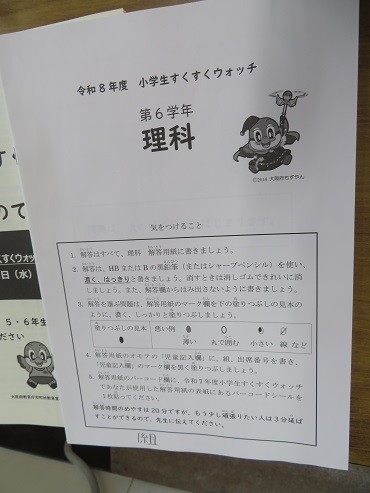 令和8年度 小学生すくすくウォッチ
第6学年
理科
©2014 大阪府もずやん
気をつけること
1. 解答はすべて、理科 解答用紙に書きましょう。
2. 解答は、HBまたはBの黒鉛筆（またはシャープペンシル）を使い、
濃く、はっきりと書きましょう。消すときは消しゴムできれいに消
しましょう。また、解答欄からはみ出さないように書きましょう。
3. 解答を選ぶ問題は、解答用紙のマーク欄を下の塗りつぶしの見本
のように、濃く、しっかりと塗りつぶしましょう。
塗りつぶしの見本 悪い例
薄い 丸で囲む 小さい 線 など
4. 解答用紙のオモテの「児童記入欄」に、組、出席番号を書き、
「児童記入欄」のマーク欄を黒く塗りつぶしましょう。
5. 解答用紙のバーコード欄に、令和7年度小学生すくすくウォッチ
であなたが使用した解答用紙の表紙にあるバーコードシールを
1枚貼ってください。
解答時間のめやすは20分ですが、もう少し頑張りたい人は3分延ば
すことができるので、先生に伝えてください。
す
ので
くウォッ
日（水）
5・6年生
ださい